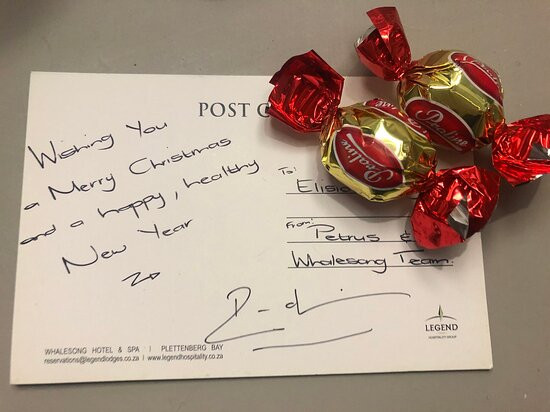 POST
Wishing You
a Merry Christmas
and a happy, healthy
New Year
To:
From:
Petrus &
Whalesong Team.
Praline
Praline
LEGEND
HOSPITALITY GROUP
WHALESONG HOTEL & SPA | PLETTENBERG BAY
reservations@legendlodges.co.za | www.legendhospitality.co.za